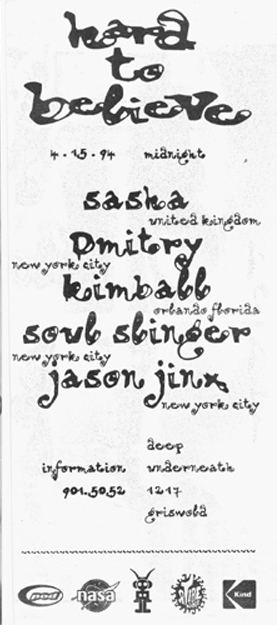 hard
to
believe
4 - 15 - 94 midnight
sasha
united kingdom
Dmitry
new york city
kimball
orlando florida
soul slinger
new york city
jason jinx
new york city
deep
information underneath
961.5052 1217
griswold
pod nasa Kind